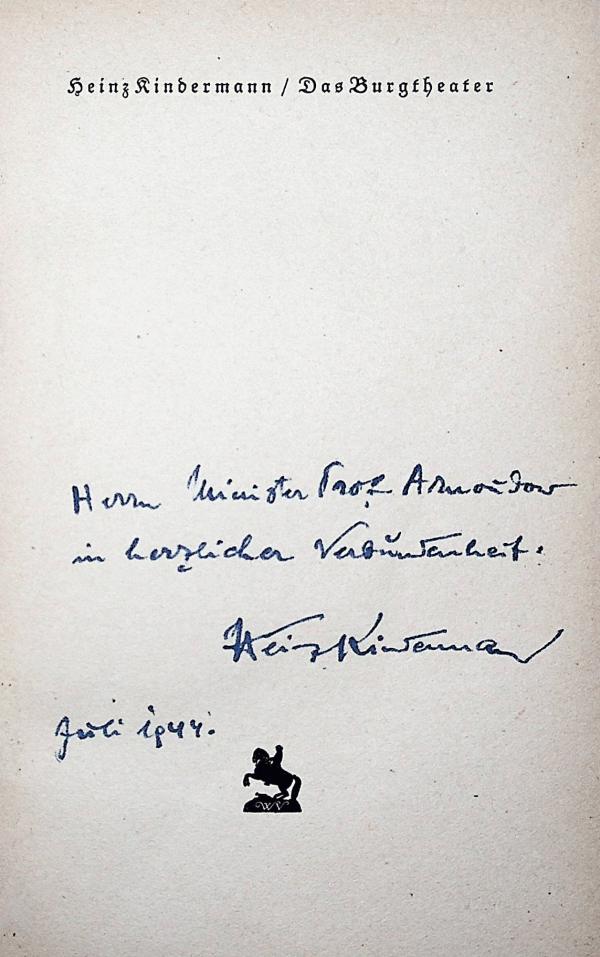 Heinz Kindermann / Das Burgtheater
Herrn Minister Prof. Arnoudow
in herzlicher Verbundenheit.
Heinz Kindermann
Juli 1944.
WV